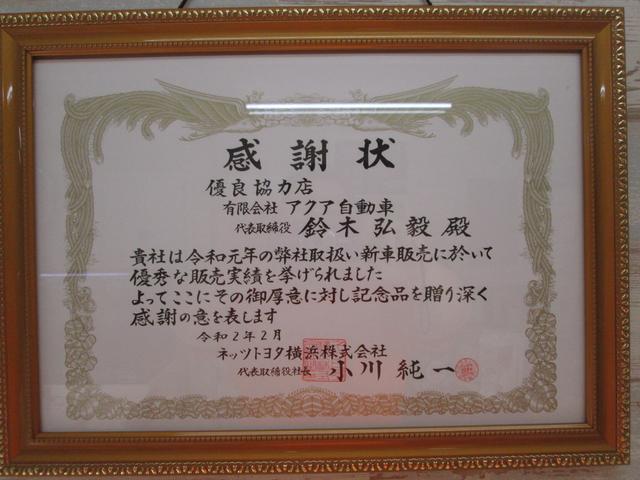 感謝状
優良協力店
有限会社 アクア自動車
代表取締役 鈴木弘毅殿
貴社は令和元年の弊社取扱い新車販売に於いて
優秀な販売実績を挙げられました
よってここにその御厚意に対し記念品を贈り深く
感謝の意を表します
令和2年2月
ネッツトヨタ横浜株式会社
代表取締役社長 小川純一